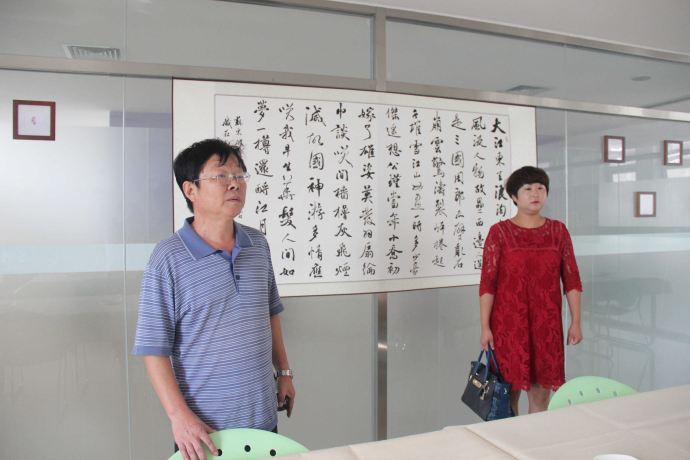 大江東去浪淘
風流人物故壘西邊人道
是三國周郎赤壁亂石
崩雲驚濤裂岸捲起
千堆雪江山如畫一時多少豪
傑遙想公瑾當年小喬初
嫁了雄姿英發羽扇綸
巾談笑間檣櫓灰飛煙
滅故國神游多情應
笑我早生華髮人間如
夢一樽還酹江月